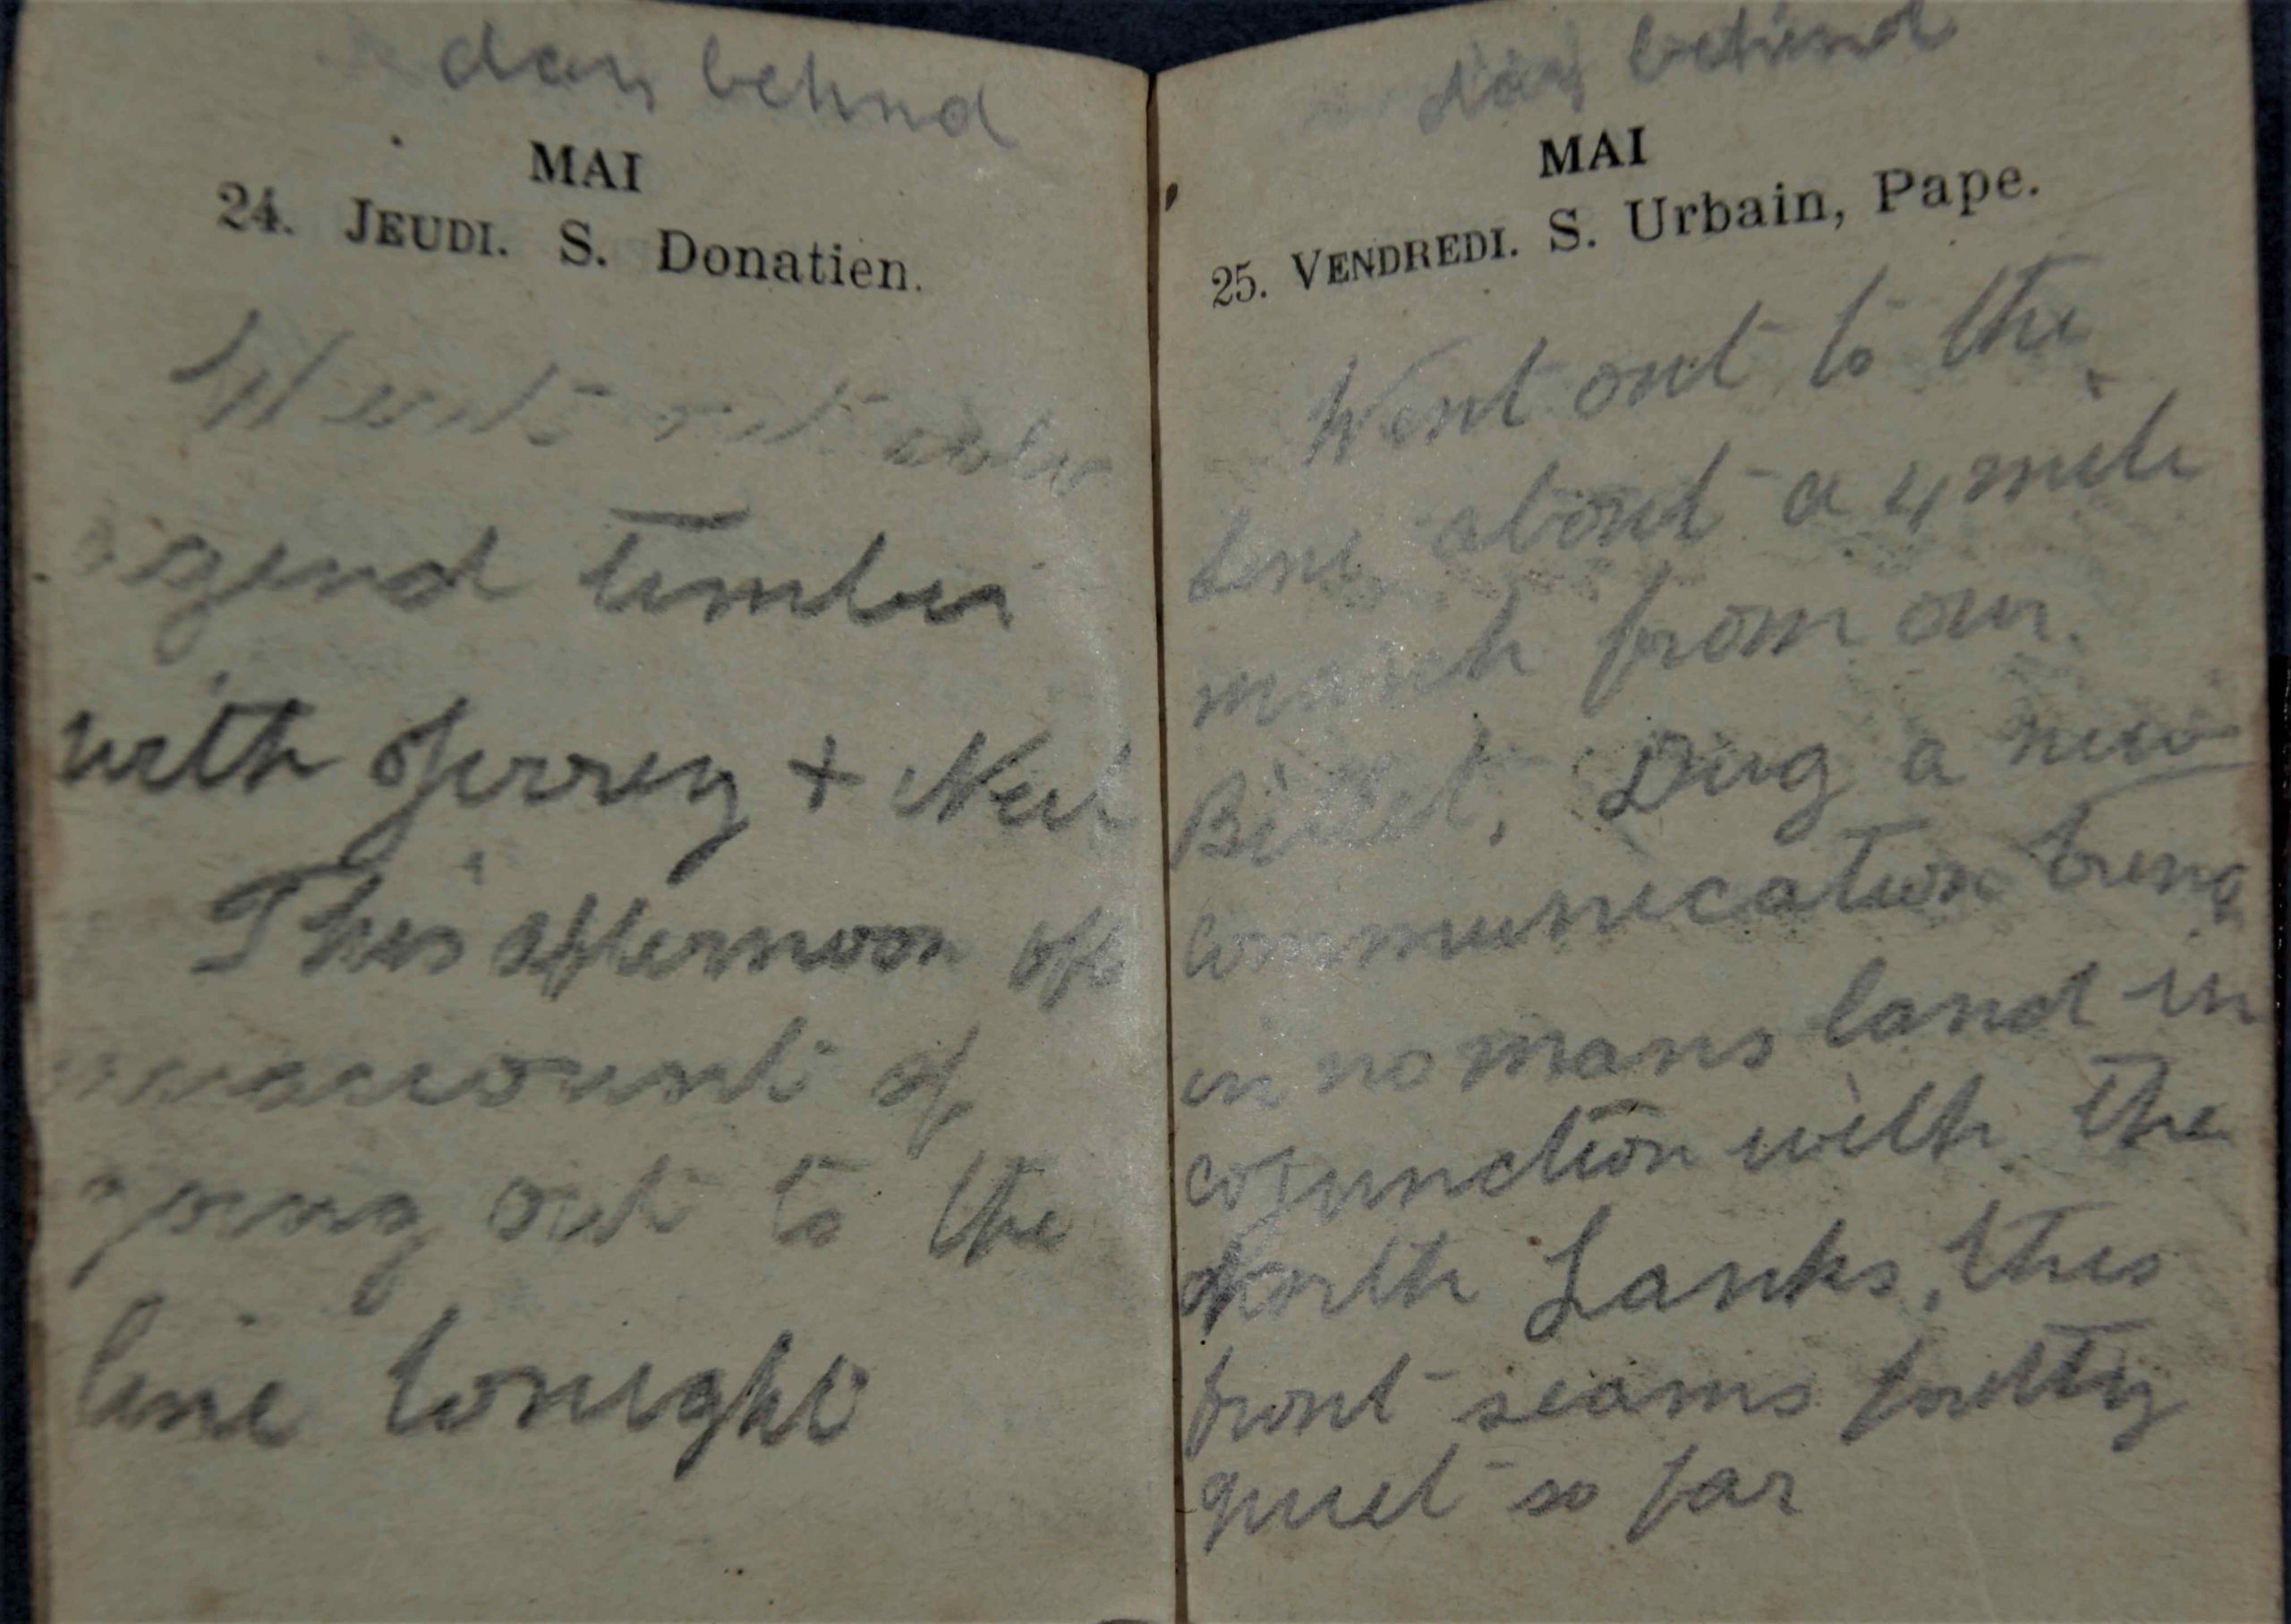 day behind
MAI
24. JEUDI. S. Donatien.
Went out after
gend timber
with Jerrey + New
This afternoon off
account of
going out to the
line tonight
day behind
MAI
25. VENDREDI. S. Urbain, Pape.
Went out to the
line about a 4 mile
march from our
Billet. Dug a new
communication trench
in no mans land in
cojunction with the
North Lanks, this
front seams pretty
quiet so far